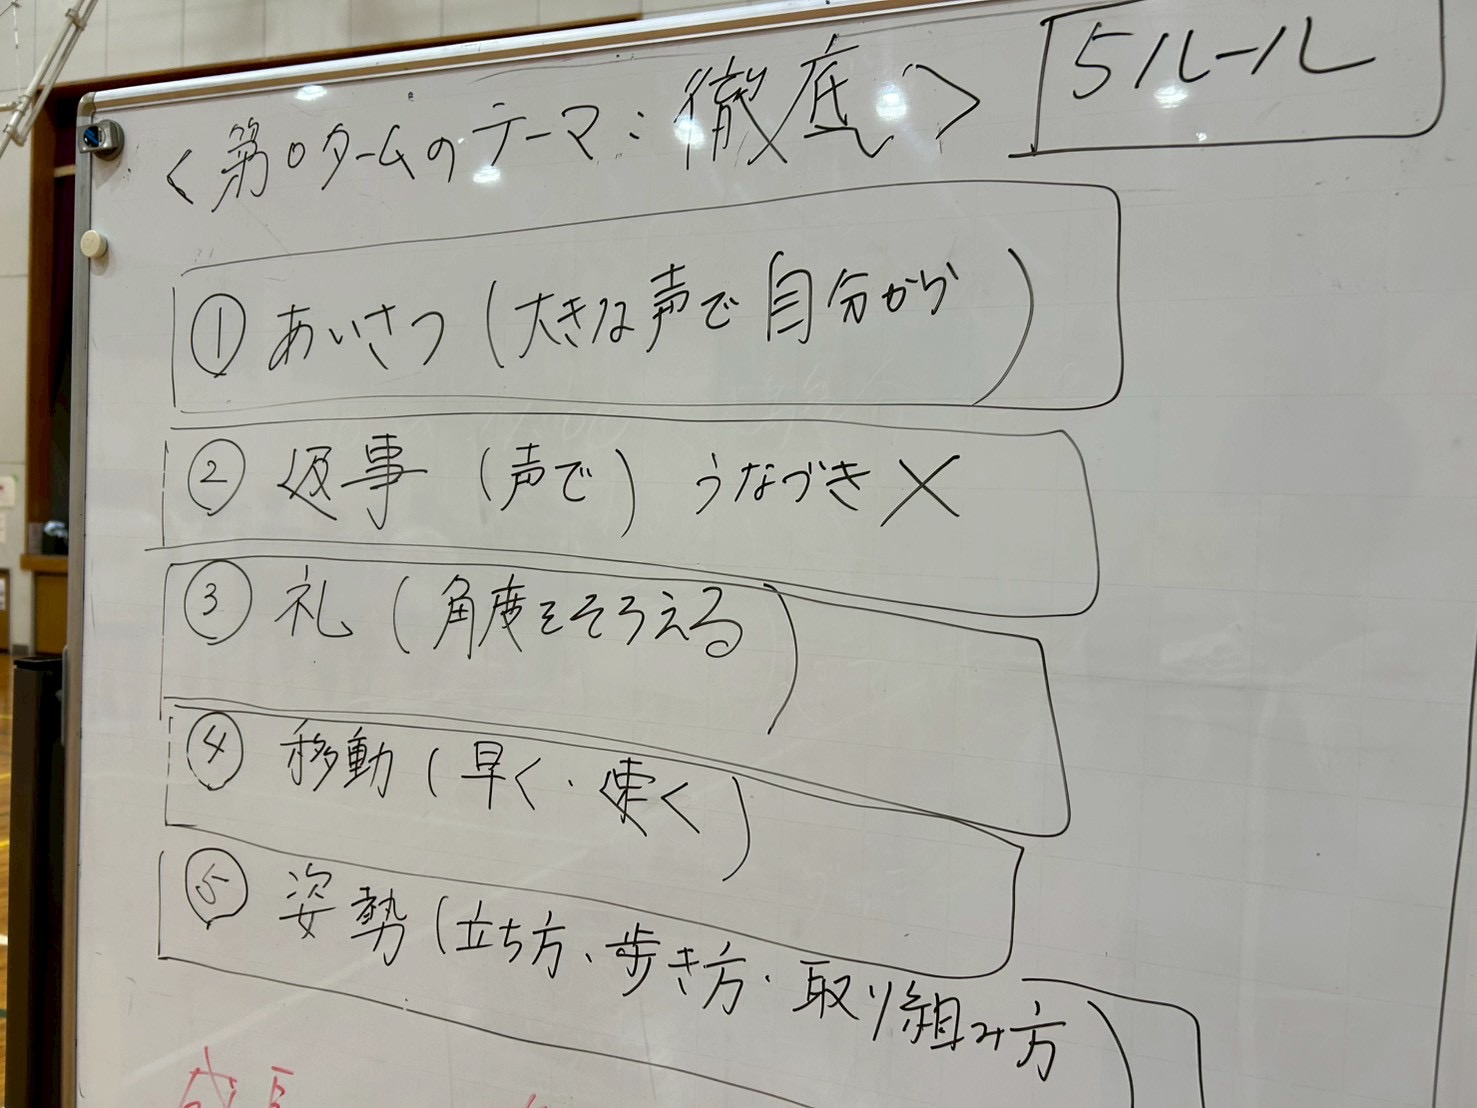 <第0タームのテーマ:徹底>
5ルール
① あいさつ(大きな声で自分から)
② 返事(声で) うなづき×
③ 礼(角度をそろえる)
④ 移動(早く・速く)
⑤ 姿勢(立ち方、歩き方・取り組み方)
成長